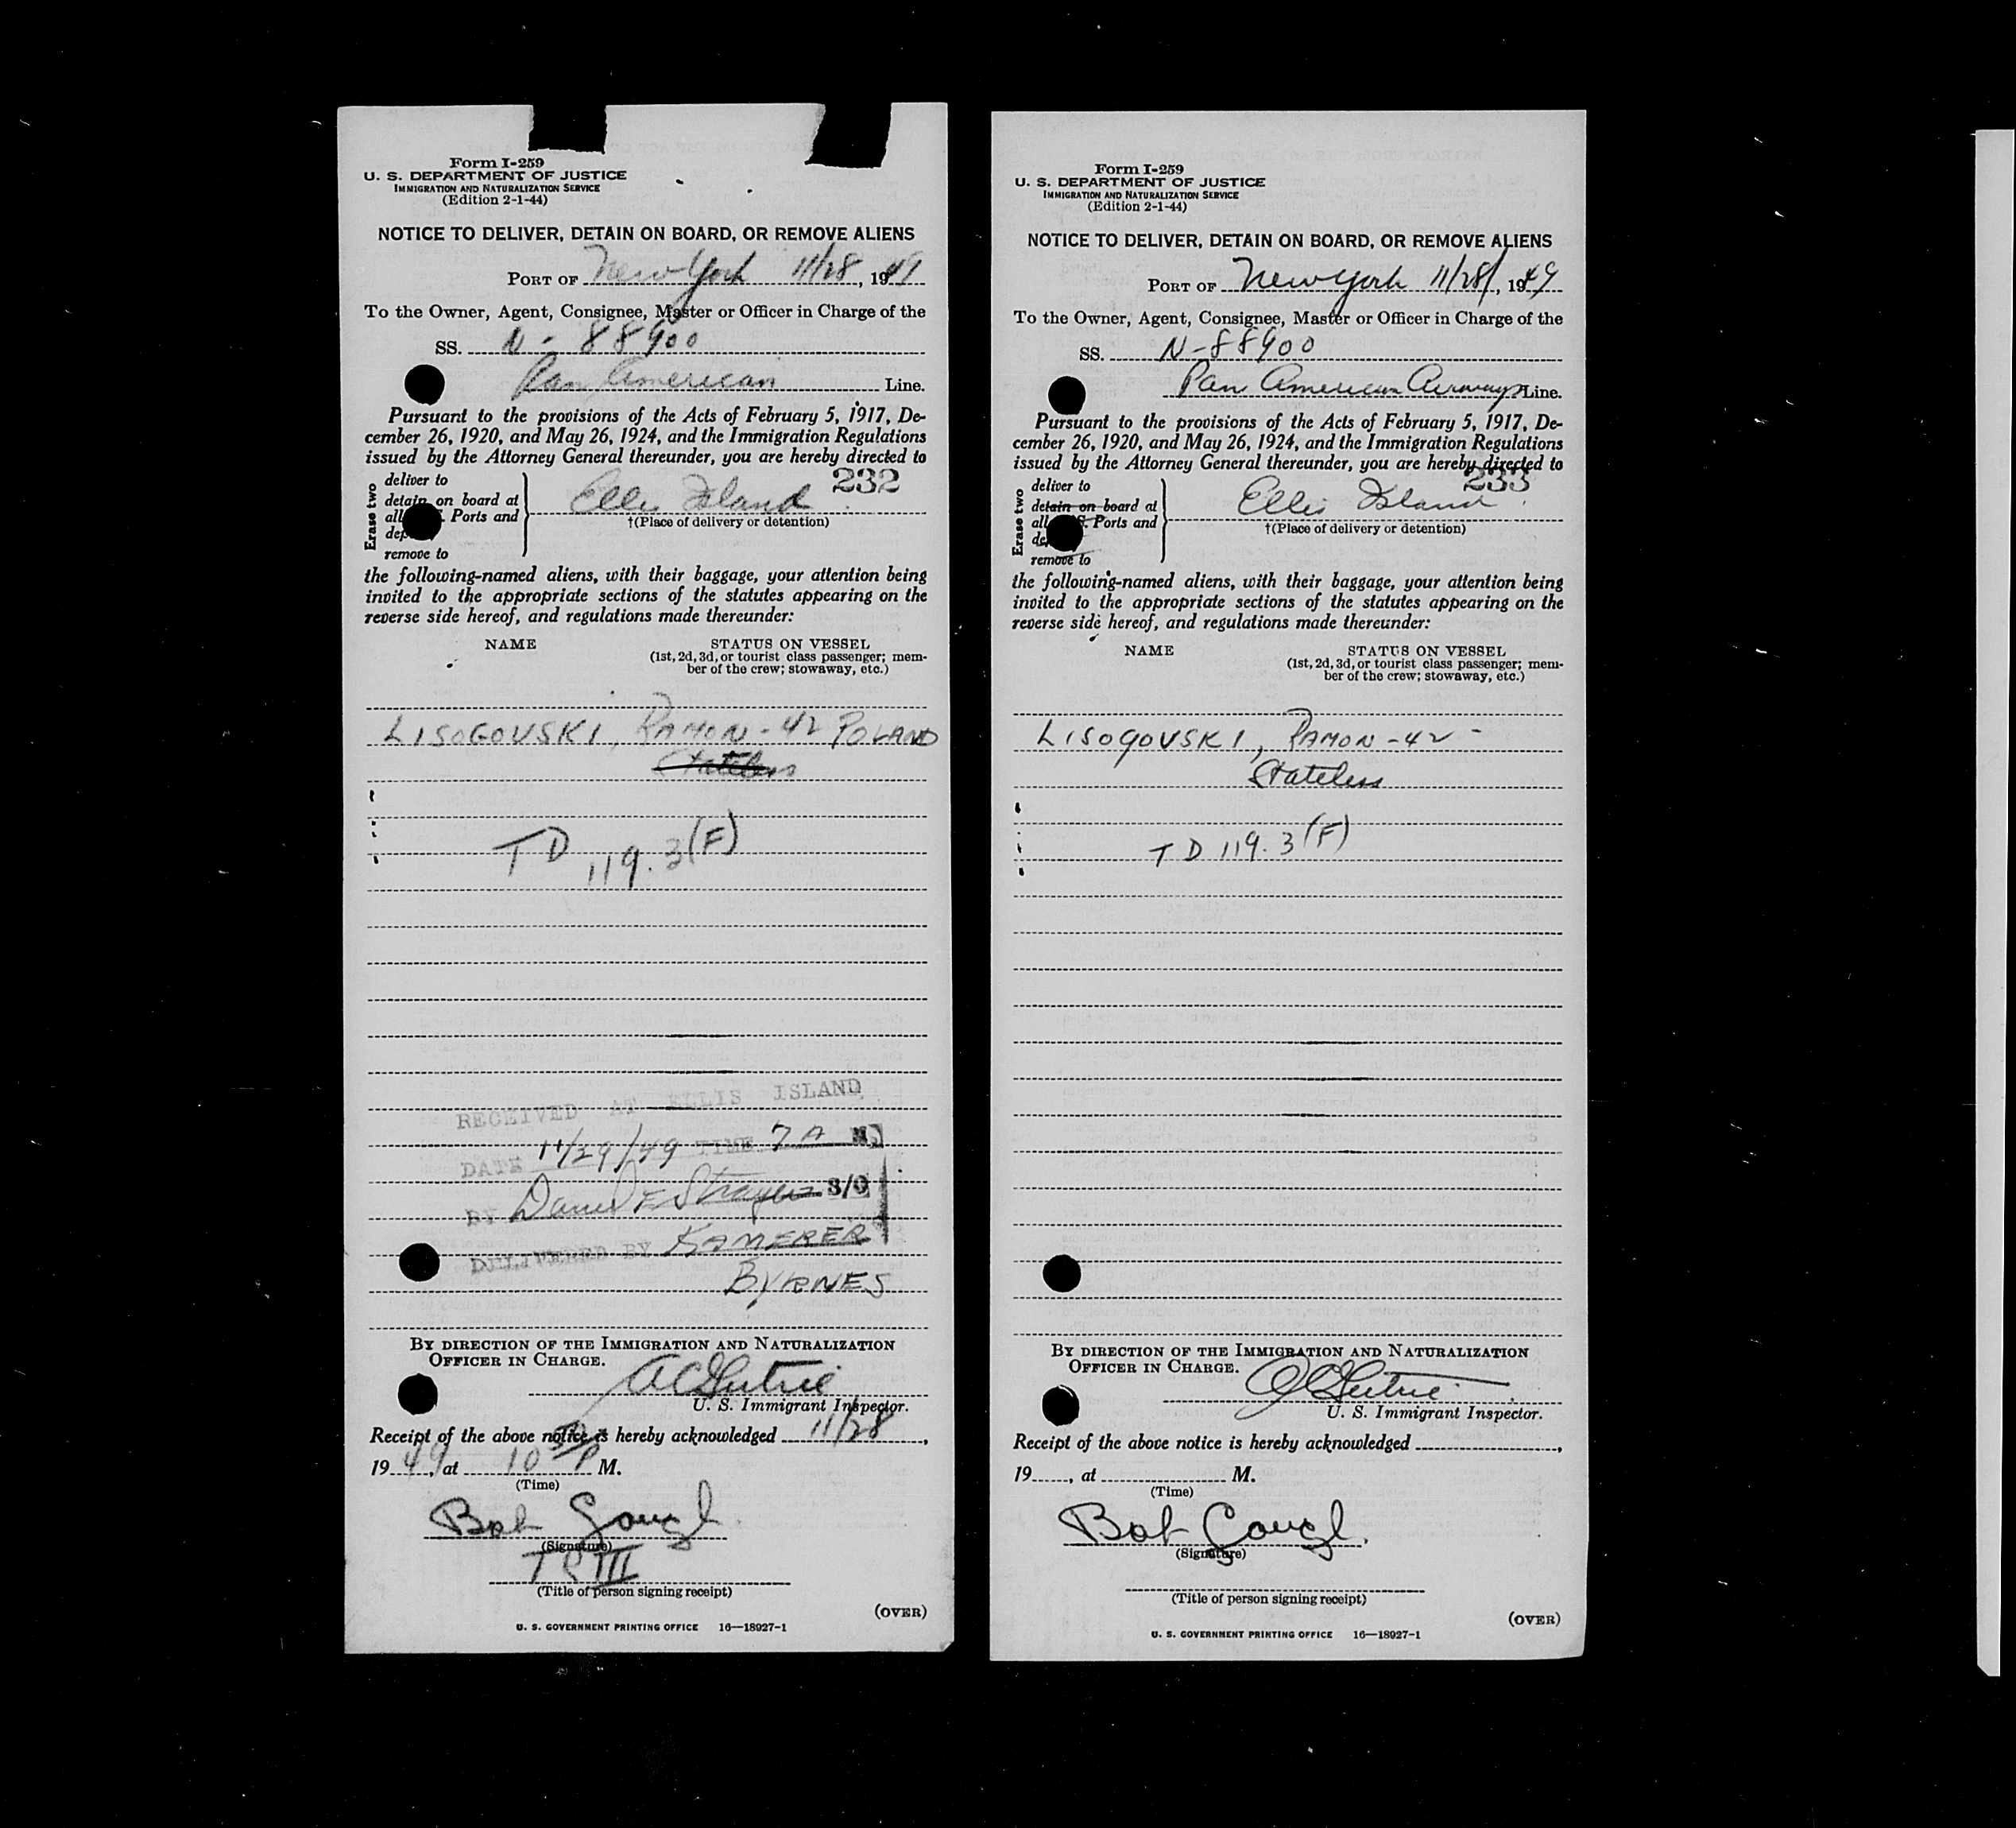 Form I-259
U. S. DEPARTMENT OF JUSTICE
IMMIGRATION AND NATURALIZATION SERVICE
(Edition 2-1-44)
NOTICE TO DELIVER, DETAIN ON BOARD, OR REMOVE ALIENS
PORT OF New York 11/28, 1949
To the Owner, Agent, Consignee, Master or Officer in Charge of the
SS. N-88900
Pan American Line.
Pursuant to the provisions of the Acts of February 5, 1917, De-
cember 26, 1920, and May 26, 1924, and the Immigration Regulations
issued by the Attorney General thereunder, you are hereby directed to
232
Erase two
deliver to
detain on board at
all Ports and
remove to
Ellis Island
†(Place of delivery or detention)
the following-named aliens, with their baggage, your attention being
invited to the appropriate sections of the statutes appearing on the
reverse side hereof, and regulations made thereunder:
NAME STATUS ON VESSEL
(1st, 2d, 3d, or tourist class passenger; mem-
ber of the crew; stowaway, etc.)
LISOGOVSKI, RAMON - 42 POLAND
Stateless
TD 119.3(F)
RECEIVED AT ELLIS ISLAND
DATE 11/29/49 TIME 7 A M
BY Daniel E S/O
DELIVERED BY KAMERER
BYRNES
BY DIRECTION OF THE IMMIGRATION AND NATURALIZATION
OFFICER IN CHARGE.
U. S. Immigrant Inspector.
Receipt of the above notice is hereby acknowledged 11/28,
1949, at 10 P M.
(Time)
Bob
(Signature)
(Title of person signing receipt)
(OVER)
U. S. GOVERNMENT PRINTING OFFICE 16—18927-1
Form I-259
U. S. DEPARTMENT OF JUSTICE
IMMIGRATION AND NATURALIZATION SERVICE
(Edition 2-1-44)
NOTICE TO DELIVER, DETAIN ON BOARD, OR REMOVE ALIENS
PORT OF New York 11/28/, 1949
To the Owner, Agent, Consignee, Master or Officer in Charge of the
SS. N-88900
Pan American Airways Line.
Pursuant to the provisions of the Acts of February 5, 1917, De-
cember 26, 1920, and May 26, 1924, and the Immigration Regulations
issued by the Attorney General thereunder, you are hereby directed to
233
Erase two
deliver to
detain on board at
all Ports and
remove to
Ellis Island
†(Place of delivery or detention)
the following-named aliens, with their baggage, your attention being
invited to the appropriate sections of the statutes appearing on the
reverse side hereof, and regulations made thereunder:
NAME STATUS ON VESSEL
(1st, 2d, 3d, or tourist class passenger; mem-
ber of the crew; stowaway, etc.)
LISOGOVSKI, RAMON - 42 -
Stateless
TD 119.3(F)
BY DIRECTION OF THE IMMIGRATION AND NATURALIZATION
OFFICER IN CHARGE.
U. S. Immigrant Inspector.
Receipt of the above notice is hereby acknowledged ,
19 , at M.
(Time)
Bob
(Signature)
(Title of person signing receipt)
(OVER)
U. S. GOVERNMENT PRINTING OFFICE 16—18927-1